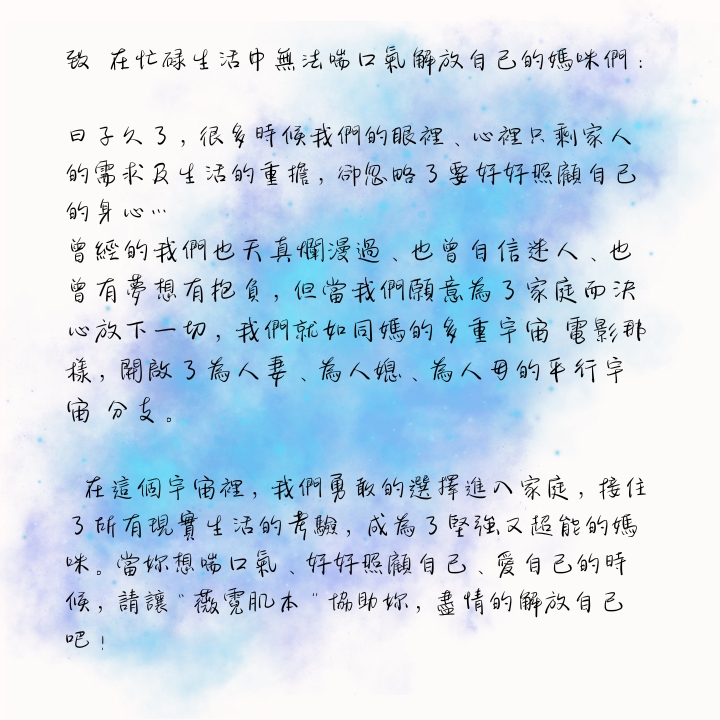 致 在忙碌生活中無法喘口氣解放自己的媽咪們：
日子久了，很多時候我們的眼裡、心裡只剩家人
的需求及生活的重擔，卻忽略了要好好照顧自己
的身心…
曾經的我們也天真爛漫過、也曾自信迷人、也
曾有夢想有抱負，但當我們願意為了家庭而決
心放下一切，我們就如同媽的多重宇宙 電影那
樣，開啟了為人妻、為人媳、為人母的平行宇
宙 分支。
在這個宇宙裡，我們勇敢的選擇進入家庭，接住
了所有現實生活的考驗，成為了堅強又超能的媽
咪。當妳想喘口氣、好好照顧自己、愛自己的時
候，請讓"薇霓肌本"協助妳，盡情的解放自己
吧！